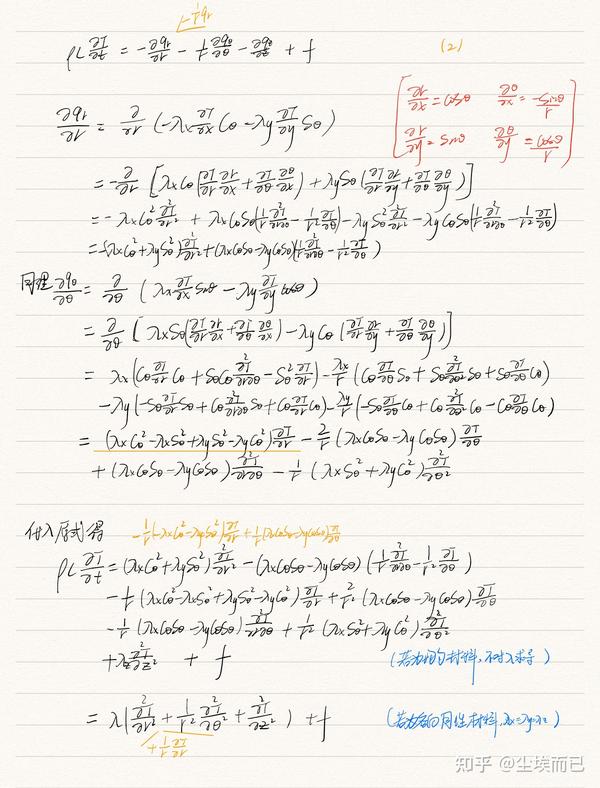 -\frac{1}{r}q_r
ρC\frac{∂T}{∂t} = -\frac{∂q_r}{∂r} - \frac{1}{r}\frac{∂q_θ}{∂θ} - \frac{∂q_z}{∂z} + f (2)
\frac{∂r}{∂x}=cosθ \frac{∂θ}{∂x}=\frac{-sinθ}{r}
\frac{∂r}{∂y}=sinθ \frac{∂θ}{∂y}=\frac{cosθ}{r}
\frac{∂q_r}{∂r} = \frac{∂}{∂r}(-λx\frac{∂T}{∂x}Cθ - λy\frac{∂T}{∂y}Sθ)
= -\frac{∂}{∂r}[λxCθ(\frac{∂T}{∂r}\frac{∂r}{∂x}+\frac{∂T}{∂θ}\frac{∂θ}{∂x}) + λySθ(\frac{∂T}{∂r}\frac{∂r}{∂y}+\frac{∂T}{∂θ}\frac{∂θ}{∂y})]
= -λxCθ²\frac{∂²T}{∂r²} + λxCθSθ(\frac{1}{r}\frac{∂²T}{∂r∂θ}-\frac{1}{r²}\frac{∂T}{∂θ}) - λySθ²\frac{∂²T}{∂r²} - λyCθSθ(\frac{1}{r}\frac{∂²T}{∂r∂θ}-\frac{1}{r²}\frac{∂T}{∂θ})
= -(λxCθ²+λySθ²)\frac{∂²T}{∂r²}+(λxCθSθ-λyCθSθ)(\frac{1}{r}\frac{∂²T}{∂r∂θ}-\frac{1}{r²}\frac{∂T}{∂θ})
同理\frac{∂q_θ}{∂θ} = \frac{∂}{∂θ}(λx\frac{∂T}{∂x}sinθ - λy\frac{∂T}{∂y}cosθ)
= \frac{∂}{∂θ}[λxSθ(\frac{∂T}{∂r}\frac{∂r}{∂x}+\frac{∂T}{∂θ}\frac{∂θ}{∂x}) - λyCθ(\frac{∂T}{∂r}\frac{∂r}{∂y}+\frac{∂T}{∂θ}\frac{∂θ}{∂y})]
= λx(Cθ\frac{∂T}{∂r}Cθ + SθCθ\frac{∂²T}{∂r∂θ} - Sθ²\frac{∂T}{∂r}) - \frac{λx}{r}(Cθ\frac{∂T}{∂θ}Sθ + Sθ\frac{∂²T}{∂θ²}Sθ + Sθ\frac{∂T}{∂θ}Cθ)
-λy(-Sθ\frac{∂T}{∂r}Sθ + Cθ\frac{∂²T}{∂r∂θ}Sθ + Cθ\frac{∂T}{∂r}Cθ) - \frac{λy}{r}(-Sθ\frac{∂T}{∂θ}Cθ + Cθ\frac{∂²T}{∂θ²}Cθ - Cθ\frac{∂T}{∂θ}Sθ)
= (λxCθ²-λxSθ²+λySθ²-λyCθ²)\frac{∂T}{∂r} - \frac{2}{r}(λxCθSθ-λyCθSθ)\frac{∂T}{∂θ}
+ (λxCθSθ-λyCθSθ)\frac{∂²T}{∂r∂θ} - \frac{1}{r}(λxSθ²+λyCθ²)\frac{∂²T}{∂θ²}
代入原式得 -\frac{1}{r}(-λxCθ²-λySθ²)\frac{∂T}{∂r}+\frac{1}{r}(λxCθSθ-λyCθSθ)\frac{∂T}{∂θ}
ρC\frac{∂T}{∂t} = (λxCθ²+λySθ²)\frac{∂²T}{∂r²} - (λxCθSθ-λyCθSθ)(\frac{1}{r}\frac{∂²T}{∂r∂θ}-\frac{1}{r²}\frac{∂T}{∂θ})
-\frac{1}{r}(λxCθ²-λxSθ²+λySθ²-λyCθ²)\frac{∂T}{∂r} + \frac{2}{r²}(λxCθSθ-λyCθSθ)\frac{∂T}{∂θ}
-\frac{1}{r}(λxCθSθ-λyCθSθ)\frac{∂²T}{∂r∂θ} + \frac{1}{r²}(λxSθ²+λyCθ²)\frac{∂²T}{∂θ²}
+λz\frac{∂²T}{∂z²} + f (若为均匀材料,不对λ求导)
= λ(\frac{∂²T}{∂r²}+\frac{1}{r²}\frac{∂²T}{∂θ²}+\frac{∂²T}{∂z²}) + f (若为各向同性材料,λx=λy=λz)
+\frac{1}{r}\frac{∂T}{∂r}
知乎 @尘埃而已